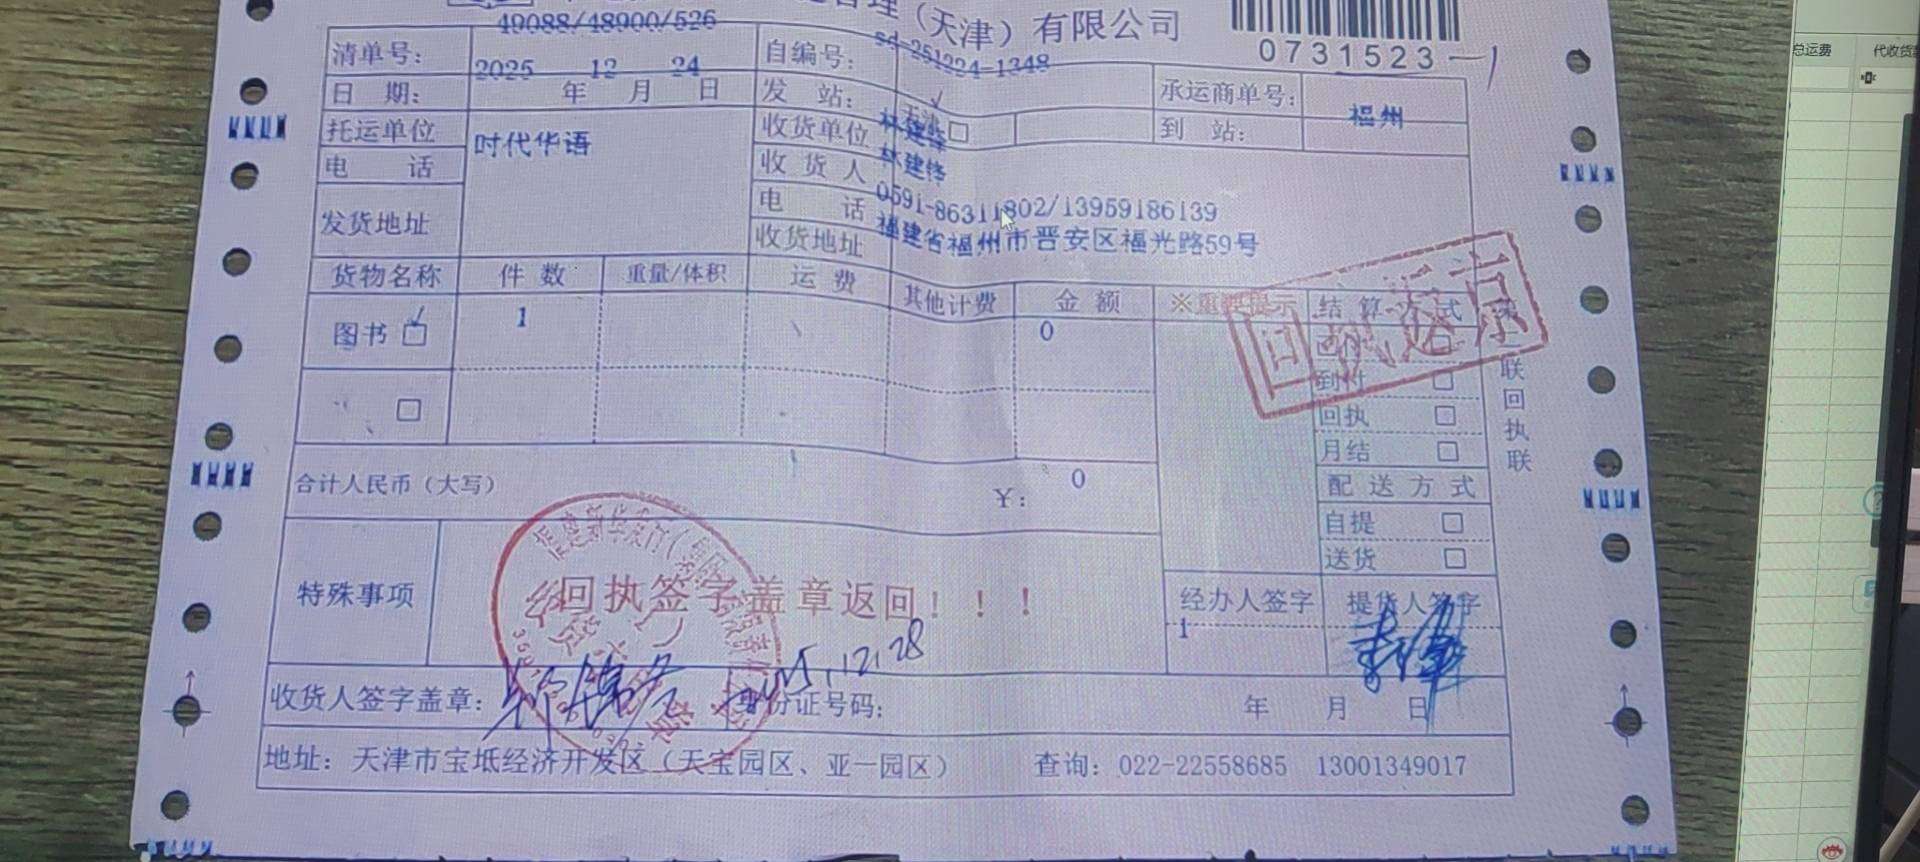 (天津)有限公司
49088/48900/526
0731523-1
清单号:
自编号: sd-251224-1348
承运商单号:
日 期: 2025 年 12 月 24 日
发 站: 天津 □
到 站: 福州
托运单位 时代华语
收货单位 林建锋
电 话
收 货 人 林建锋
电 话 0591-86311802/13959186139
发货地址
收货地址 福建省福州市晋安区福光路59号
货物名称 件 数 重量/体积 运 费 其他计费 金 额 ※重要提示 结 算 方 式
图书 □ 1 0
到付 □
回执 □
□ 月结 □
联回执联
合计人民币(大写) ¥: 0
配 送 方 式
自提 □
送货 □
特殊事项 回执签字盖章返回!!!
经办人签字 提货人签字
1
25.12.28
收货人签字盖章: 身份证号码: 年 月 日
地址: 天津市宝坻经济开发区(天宝园区、亚一园区) 查询: 022-22558685 13001349017
总运费 代收货